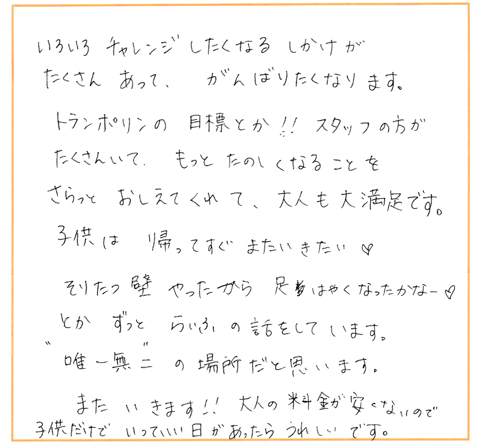 いろいろ チャレンジしたくなる しかけが
たくさん あって、 がんばりたくなります。
トランポリンの 目標とか!! スタッフの方が
たくさんいて. もっと たのしくなる ことを
さらっと おしえてくれて、大人も大満足です。
子供は 帰ってすぐ またいきたい♡
そりたつ壁 やったから 足はやくなったかなー♡
とか ずっと らいふ の話をして います。
"唯一無二" の 場所だと思います。
また いきます!! 大人の 料金が安くないので
子供だけで いっていい日があったら うれしいです。